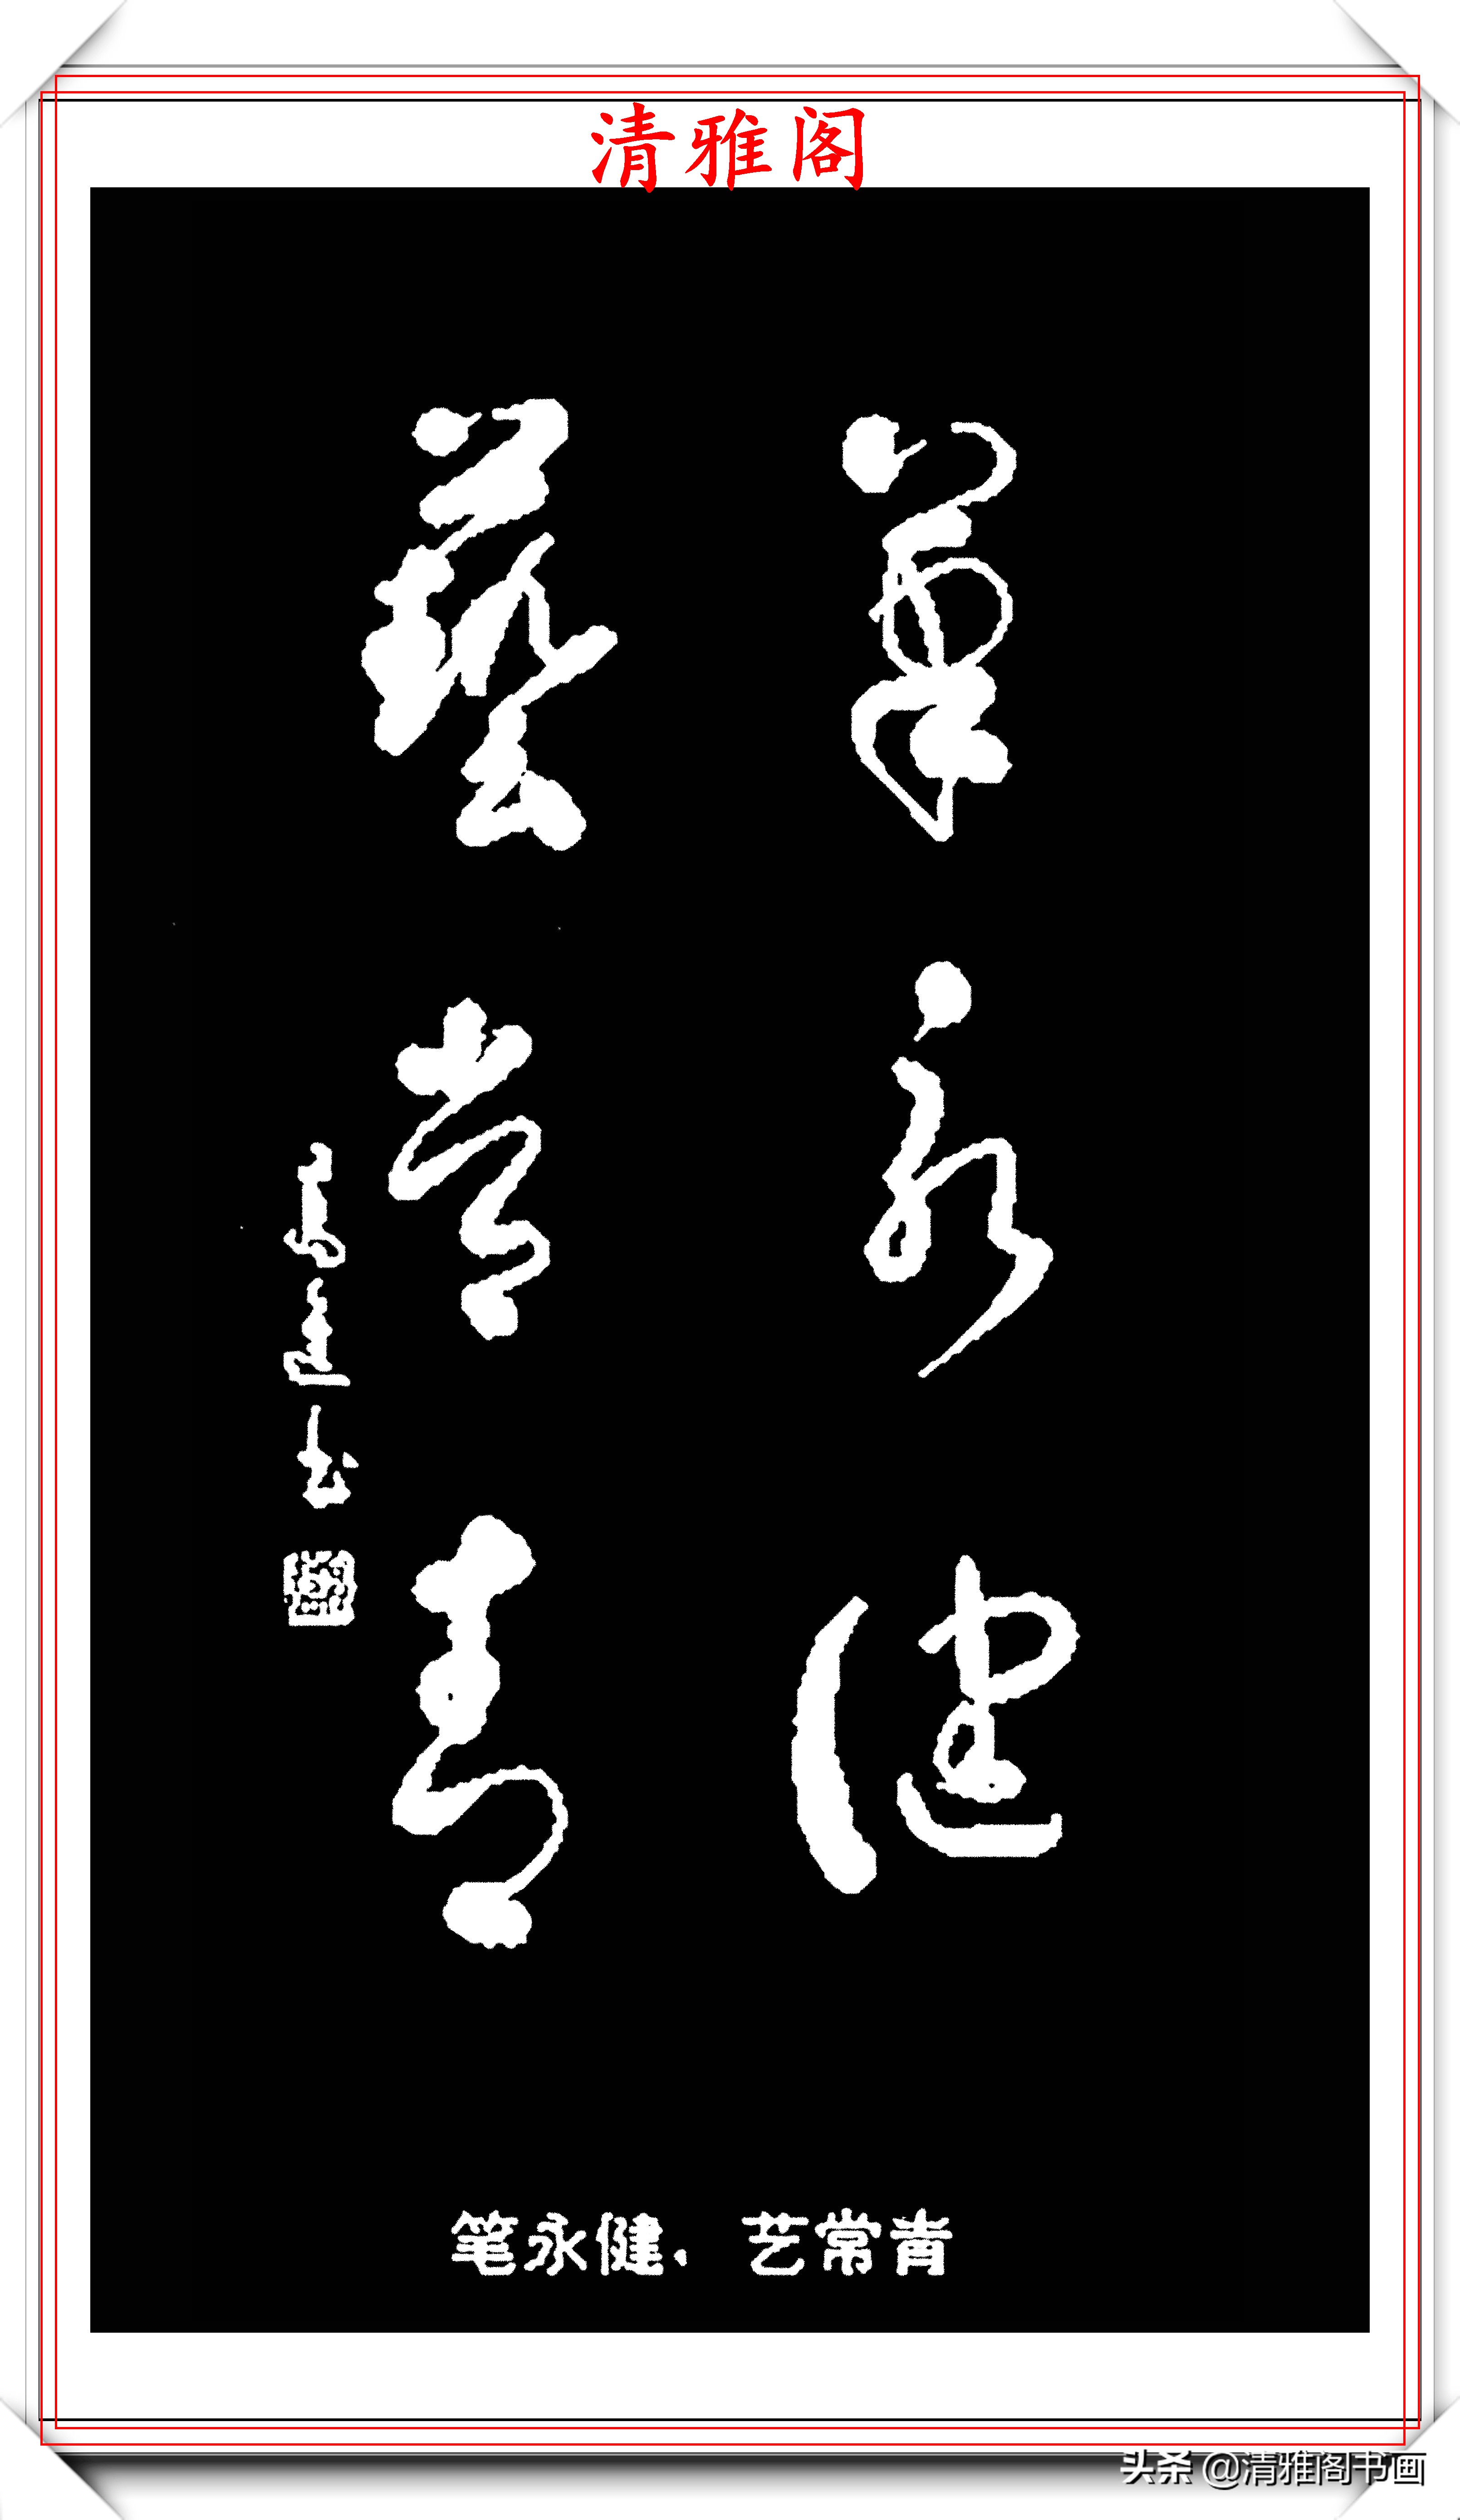 清雅阁
筆永健
藝常青
笔永健、艺常青
头条 @清雅阁书画